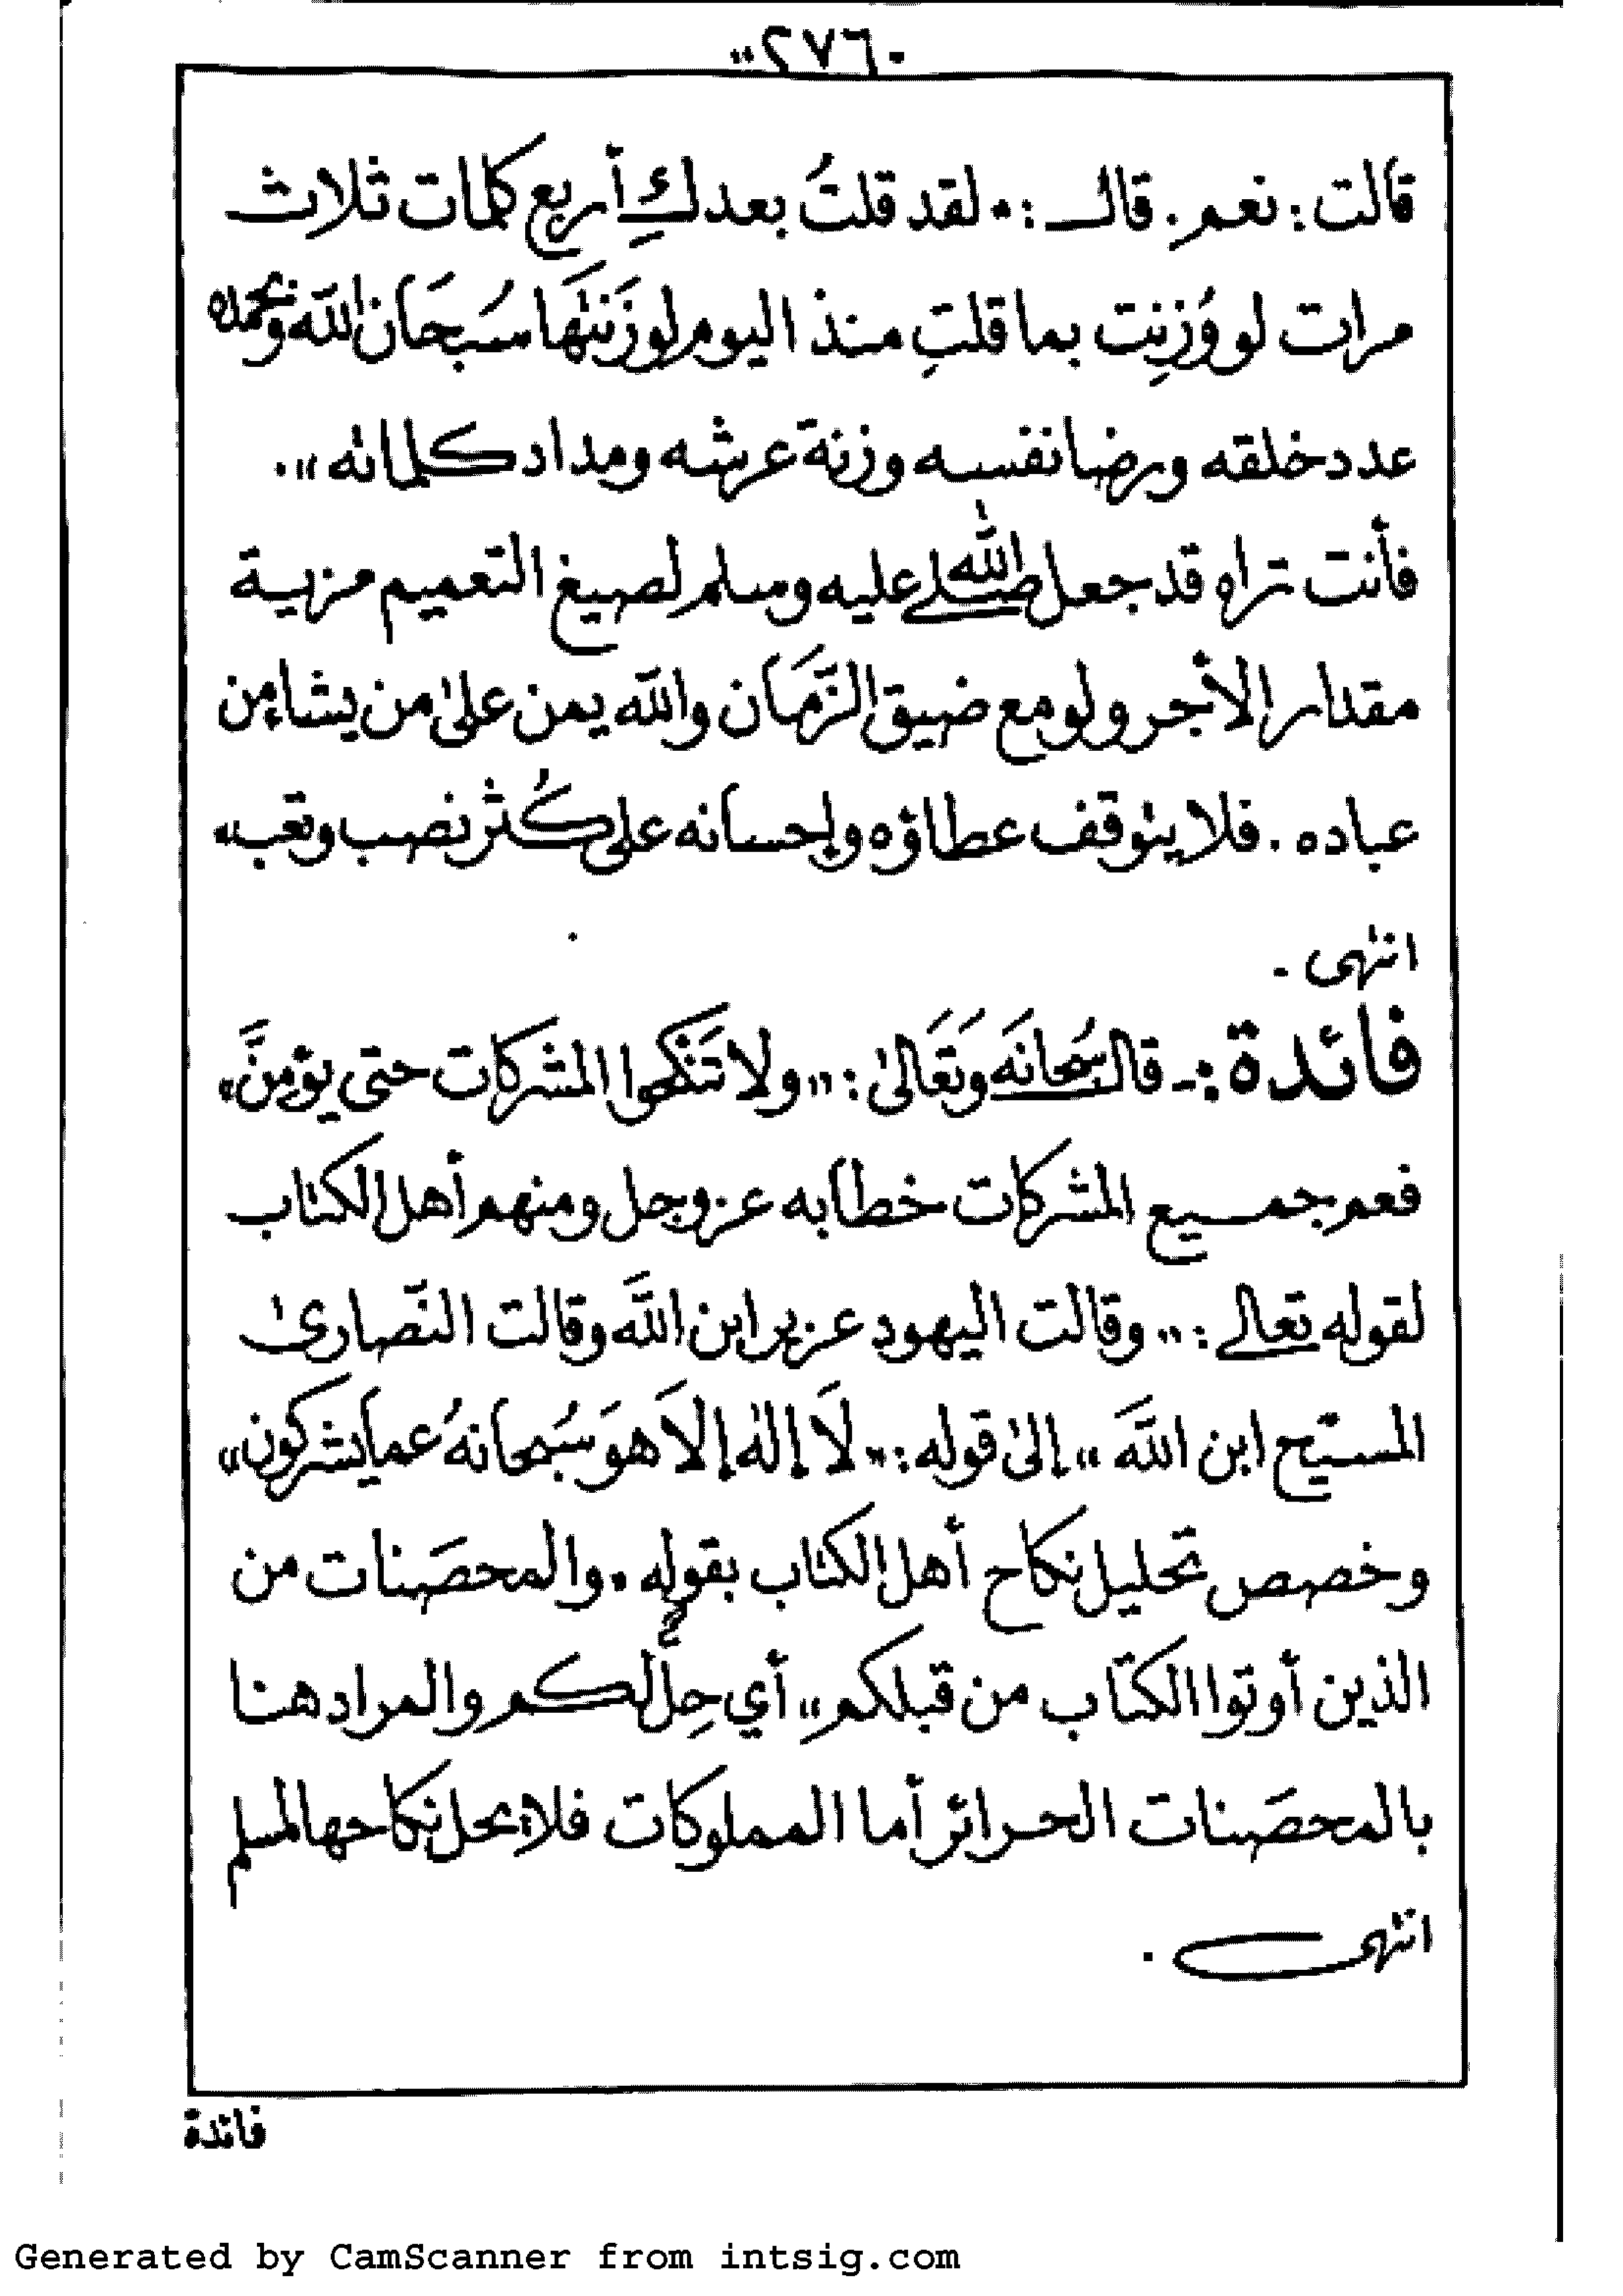 ٢٧٦
قالت: نعم. قال:" لقد قلتُ بعدكِ أربع كلمات ثلاث
مرات لو وُزِنت بما قلتِ منذ اليوم لوزَنتها سُبحَان الله وبحمده
عدد خلقه ورضا نفسه وزنة عرشه ومداد كلماته".
فأنت تراه قد جعل صلى الله عليه وسلم لصيغ التعميم مزية
مقدار الأجر ولو مع ضيق الزّمَان والله يمن على من يشاء من
عباده. فلا يتوقف عطاؤه وإحسانه على كُثر نصب وتعب"
انتهى .
فائدة:- قال سُبحانَه وَتَعَالى:" ولا تَنكحوا المشركات حتى يؤمنَّ"
فعم جميع المشركات خطابه عز وجل ومنهم أهل الكتاب
لقوله تعالى:" وقالت اليهود عزير ابن اللَّه وقالت النّصارى
المسيح ابن اللَّه" إلى قوله:" لَا إله إلاَ هوَ سُبحانهُ عما يشركون"
وخصص تحليل نكاح أهل الكتاب بقوله "والمحصَنات من
الذين أوتوا الكتاب من قبلكم" أي حِلٌّ لكم والمراد هنا
بالمحصَنات الحرائر أما المملوكات فلا يحل نكاحها المسلم
انتهى .
فائدة
Generated by CamScanner from intsig.com